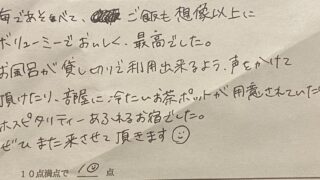 海であそべて、ご飯も想像以上に
ボリューミーでおいしく、最高でした。
お風呂が貸し切りで利用出来るよう、声をかけて
頂けたり、部屋に冷たいお茶ポットが用意されていた
ホスピタリティーあふれるお宿でした。
ぜひまた来させて頂きます
10点満点で 10 点